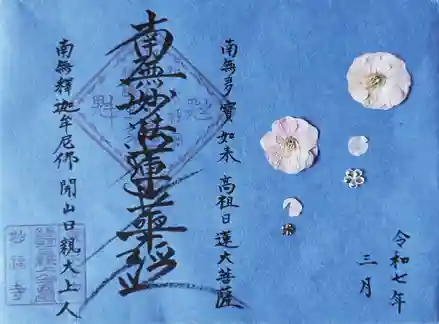 令和七年
三月
南無多寶如来 高祖日蓮大菩薩
南無妙法蓮華経
南無釋迦牟尼佛 開山日親大上人